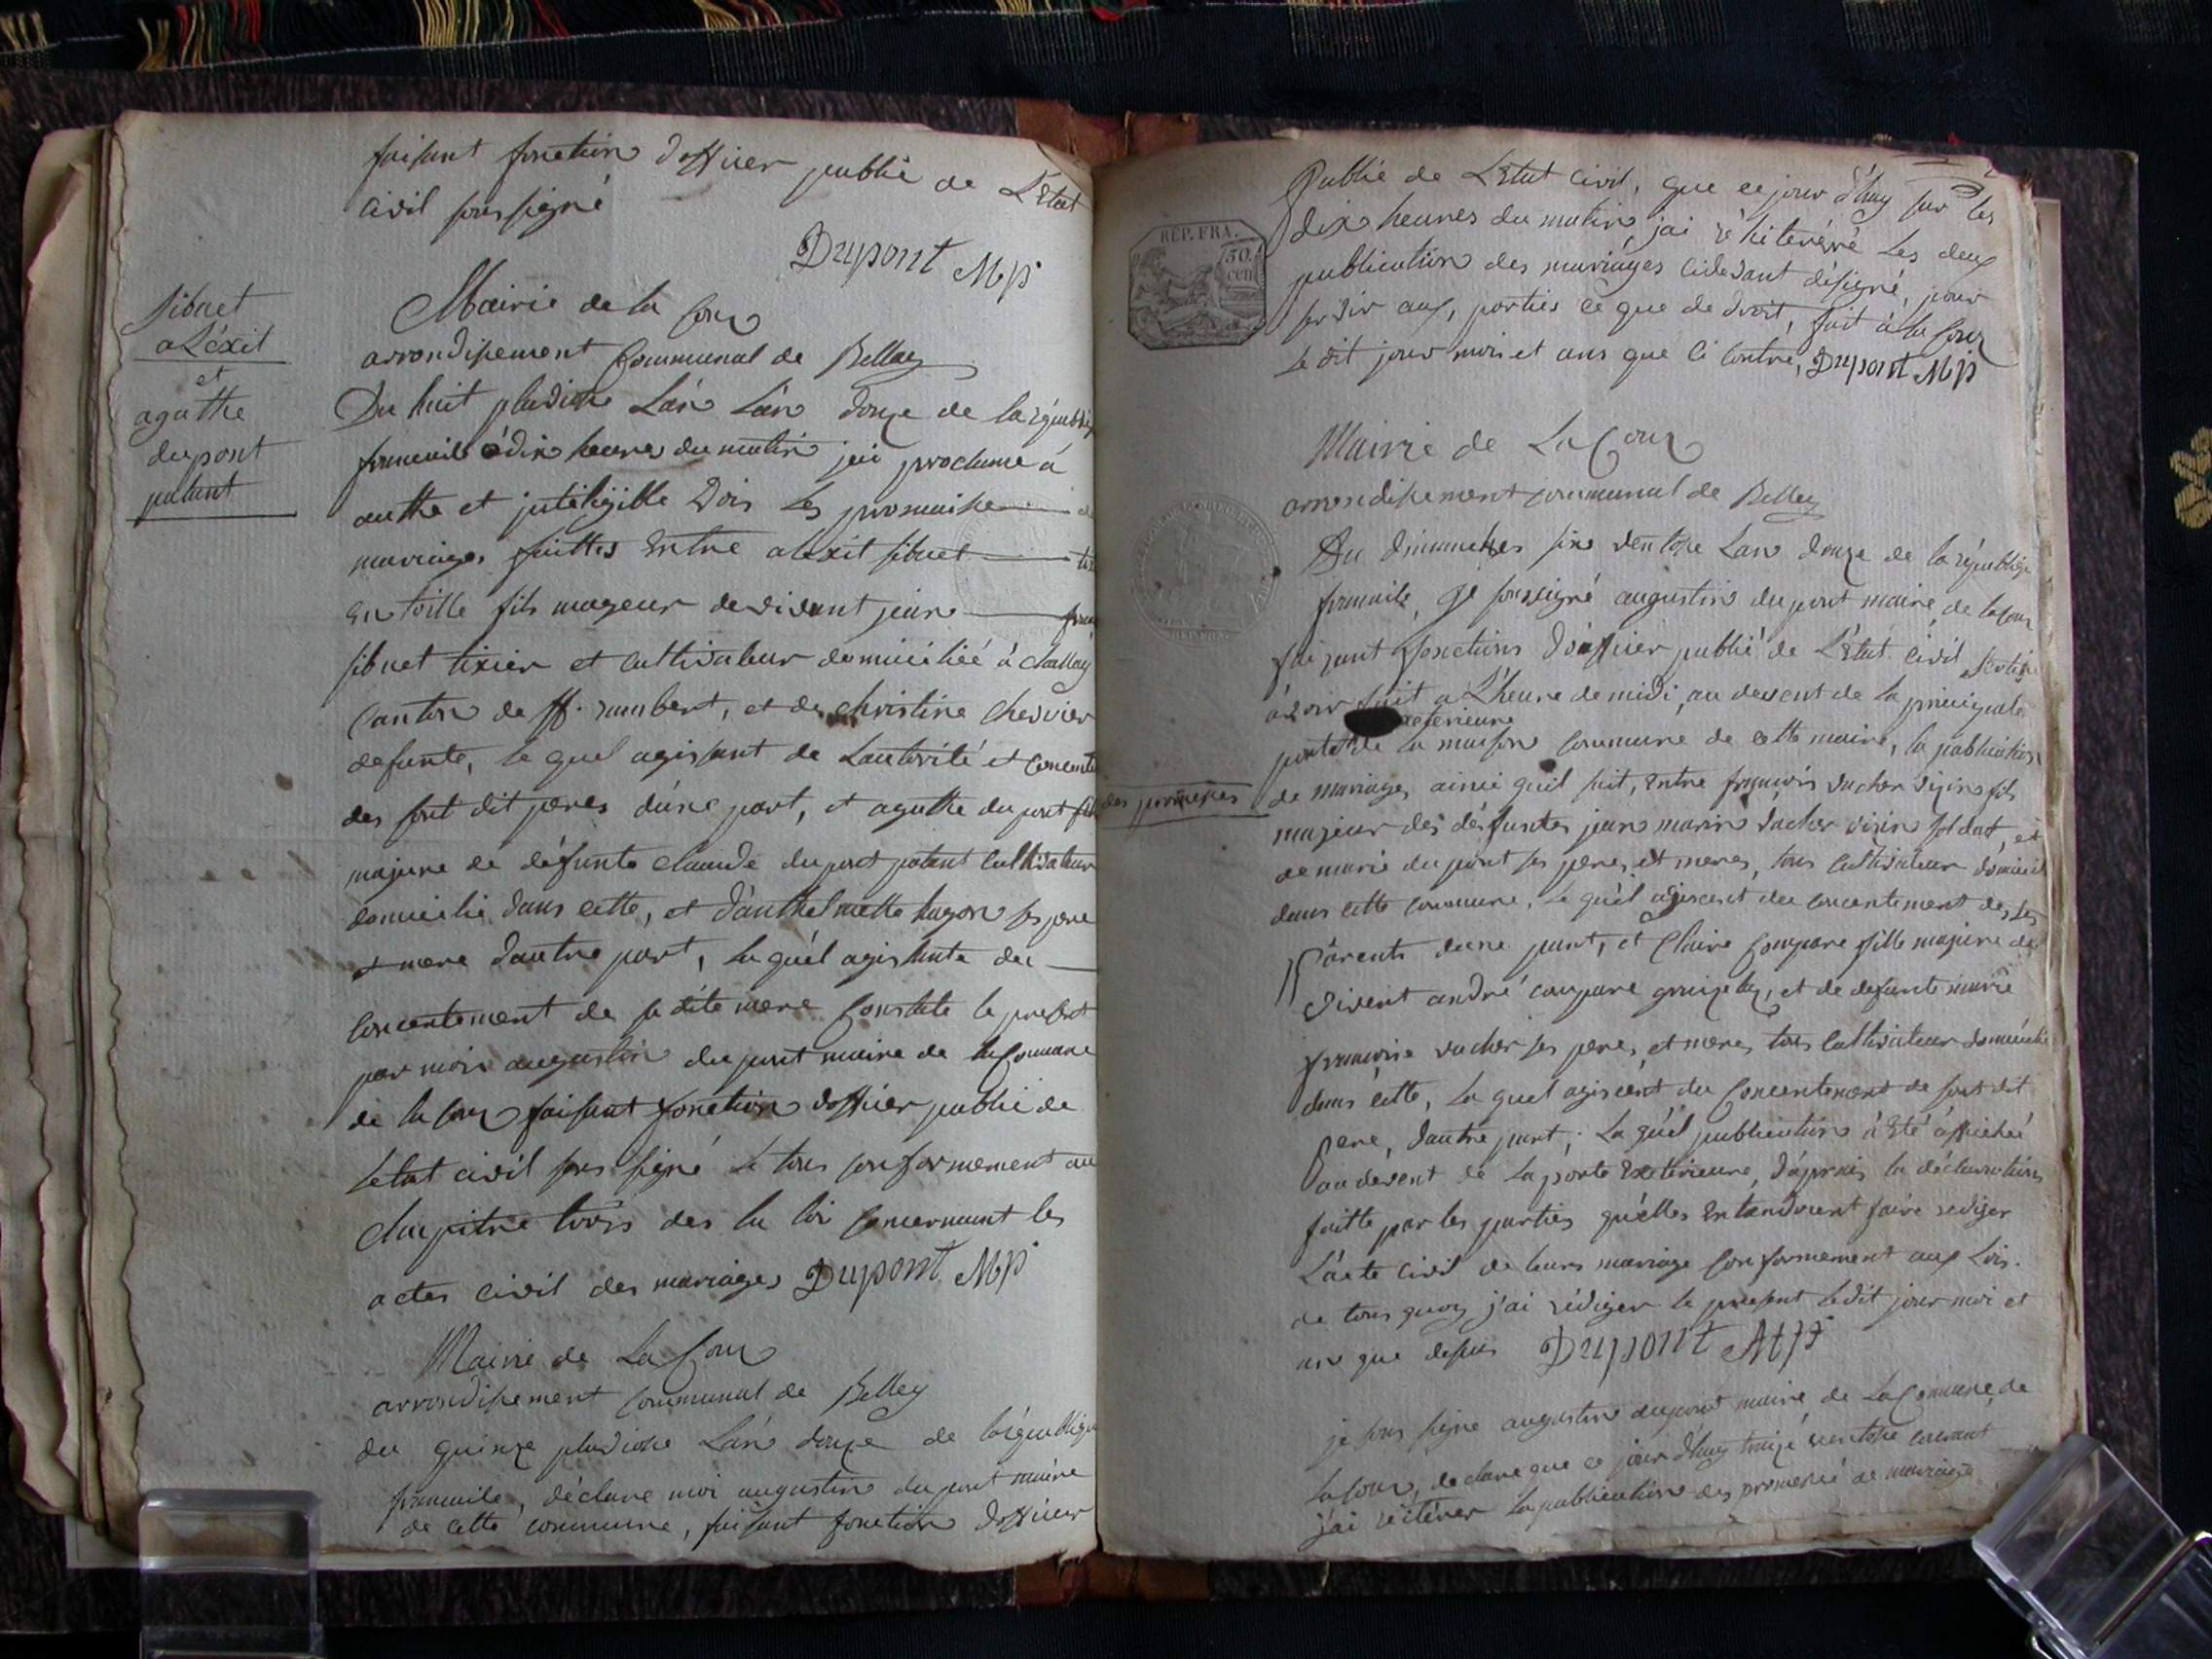 faisant fonction dofficier public de L'Etat
civil sous signé
Dupont Mp
sibuet
aLéxit
et
agathe
dupont
patant
Mairie de la Cour
arrondissement Communal de Belley
Du huit pluviose Lán Lán douze de la républiq
francaile à dix heures du matin jai proclamé à
authe et intéligible Vois les promaisse
mariages faittes Entre aléxit sibuet
en toille fils mageur de vivant jean
sibuet tixier et cultivateur domiciliéé à
Canton de st. rambert, et de christine chervier
defunte, le quel agissant de Lautorité et
des sout dit peres d'une part, et agathe du pont
majure de défunte claude du pont patant cultivateur
domicilié dans cette, et d'anthelmette hugon ses pere
et mere d'autre part, la quél agissante du
concentement de sa dite mere Constate le present
par moi augustin du pont maire de la Commune
de la Cour faisant fonction dofficier public de
Letat civil sous signé le tous conformement au
chapitre trois des la loi concernant les
actes civil des mariages Dupont Mp
Mairie de La Cour
arrondissement Communal de Belley
du quinze pluviose Lán douze de la république
francaile, déclare moi augustin du pont maire
de cette commune, faisant fonction dofficier
REP. FRA.
50.
cen
Public de L'Etat civil, que ce jour d'huy sur les
dix heures du matin, jai les deux
publication des mariages cidevant désigné, pour
servir aux, parties ce que de droit, fait à la Cour
Le dit jour mois et ans que ci contre, Dupont Mp
Mairie de La Cour
arrondissement communal de Belley
Du dimanches six ventose Lan douze de la république
francaile, Je soussigné augustin du pont maire de la Cour
faisant fonctions d'officier public de L'Etat civil
avoir fait a L'heure de midi, au devent de la principale
exterieure
porte de la maison Commune de cette mairie, la publication
des promesses
de mariages ainsi quil suit, Entre francois vacher fils
majeur des défuntes jean marin vacher soldat, et
de marie du pont ses peres et meres, tous cultivateur
dans cette commune, Le quél agissent du concentement des ses
Parents dune part, et Claire Compare fille majure de
vivent andré compare, et de defunte marie
francoise vacher ses peres et meres tous cultivateur
dans cétte, La quel agissent du Concentement de sout dit
Pere, dautre part; La quél publication à Eté affichée
au devent de la porte Exterieure, daprais la déclaration
faitte par les parties quélles Entendoient faire rediger
L'acte civil de leurs mariage conformement aux Lois.
de tous quoy j'ai rédiger le present ledit jour moi et
an que desus Dupont Mp
je sous signe augustin dupont maire de La Commune de
la Cour, declare que ce jour d'huy traize ventose courant
j'ai réiterer la publication des promesse de mariage